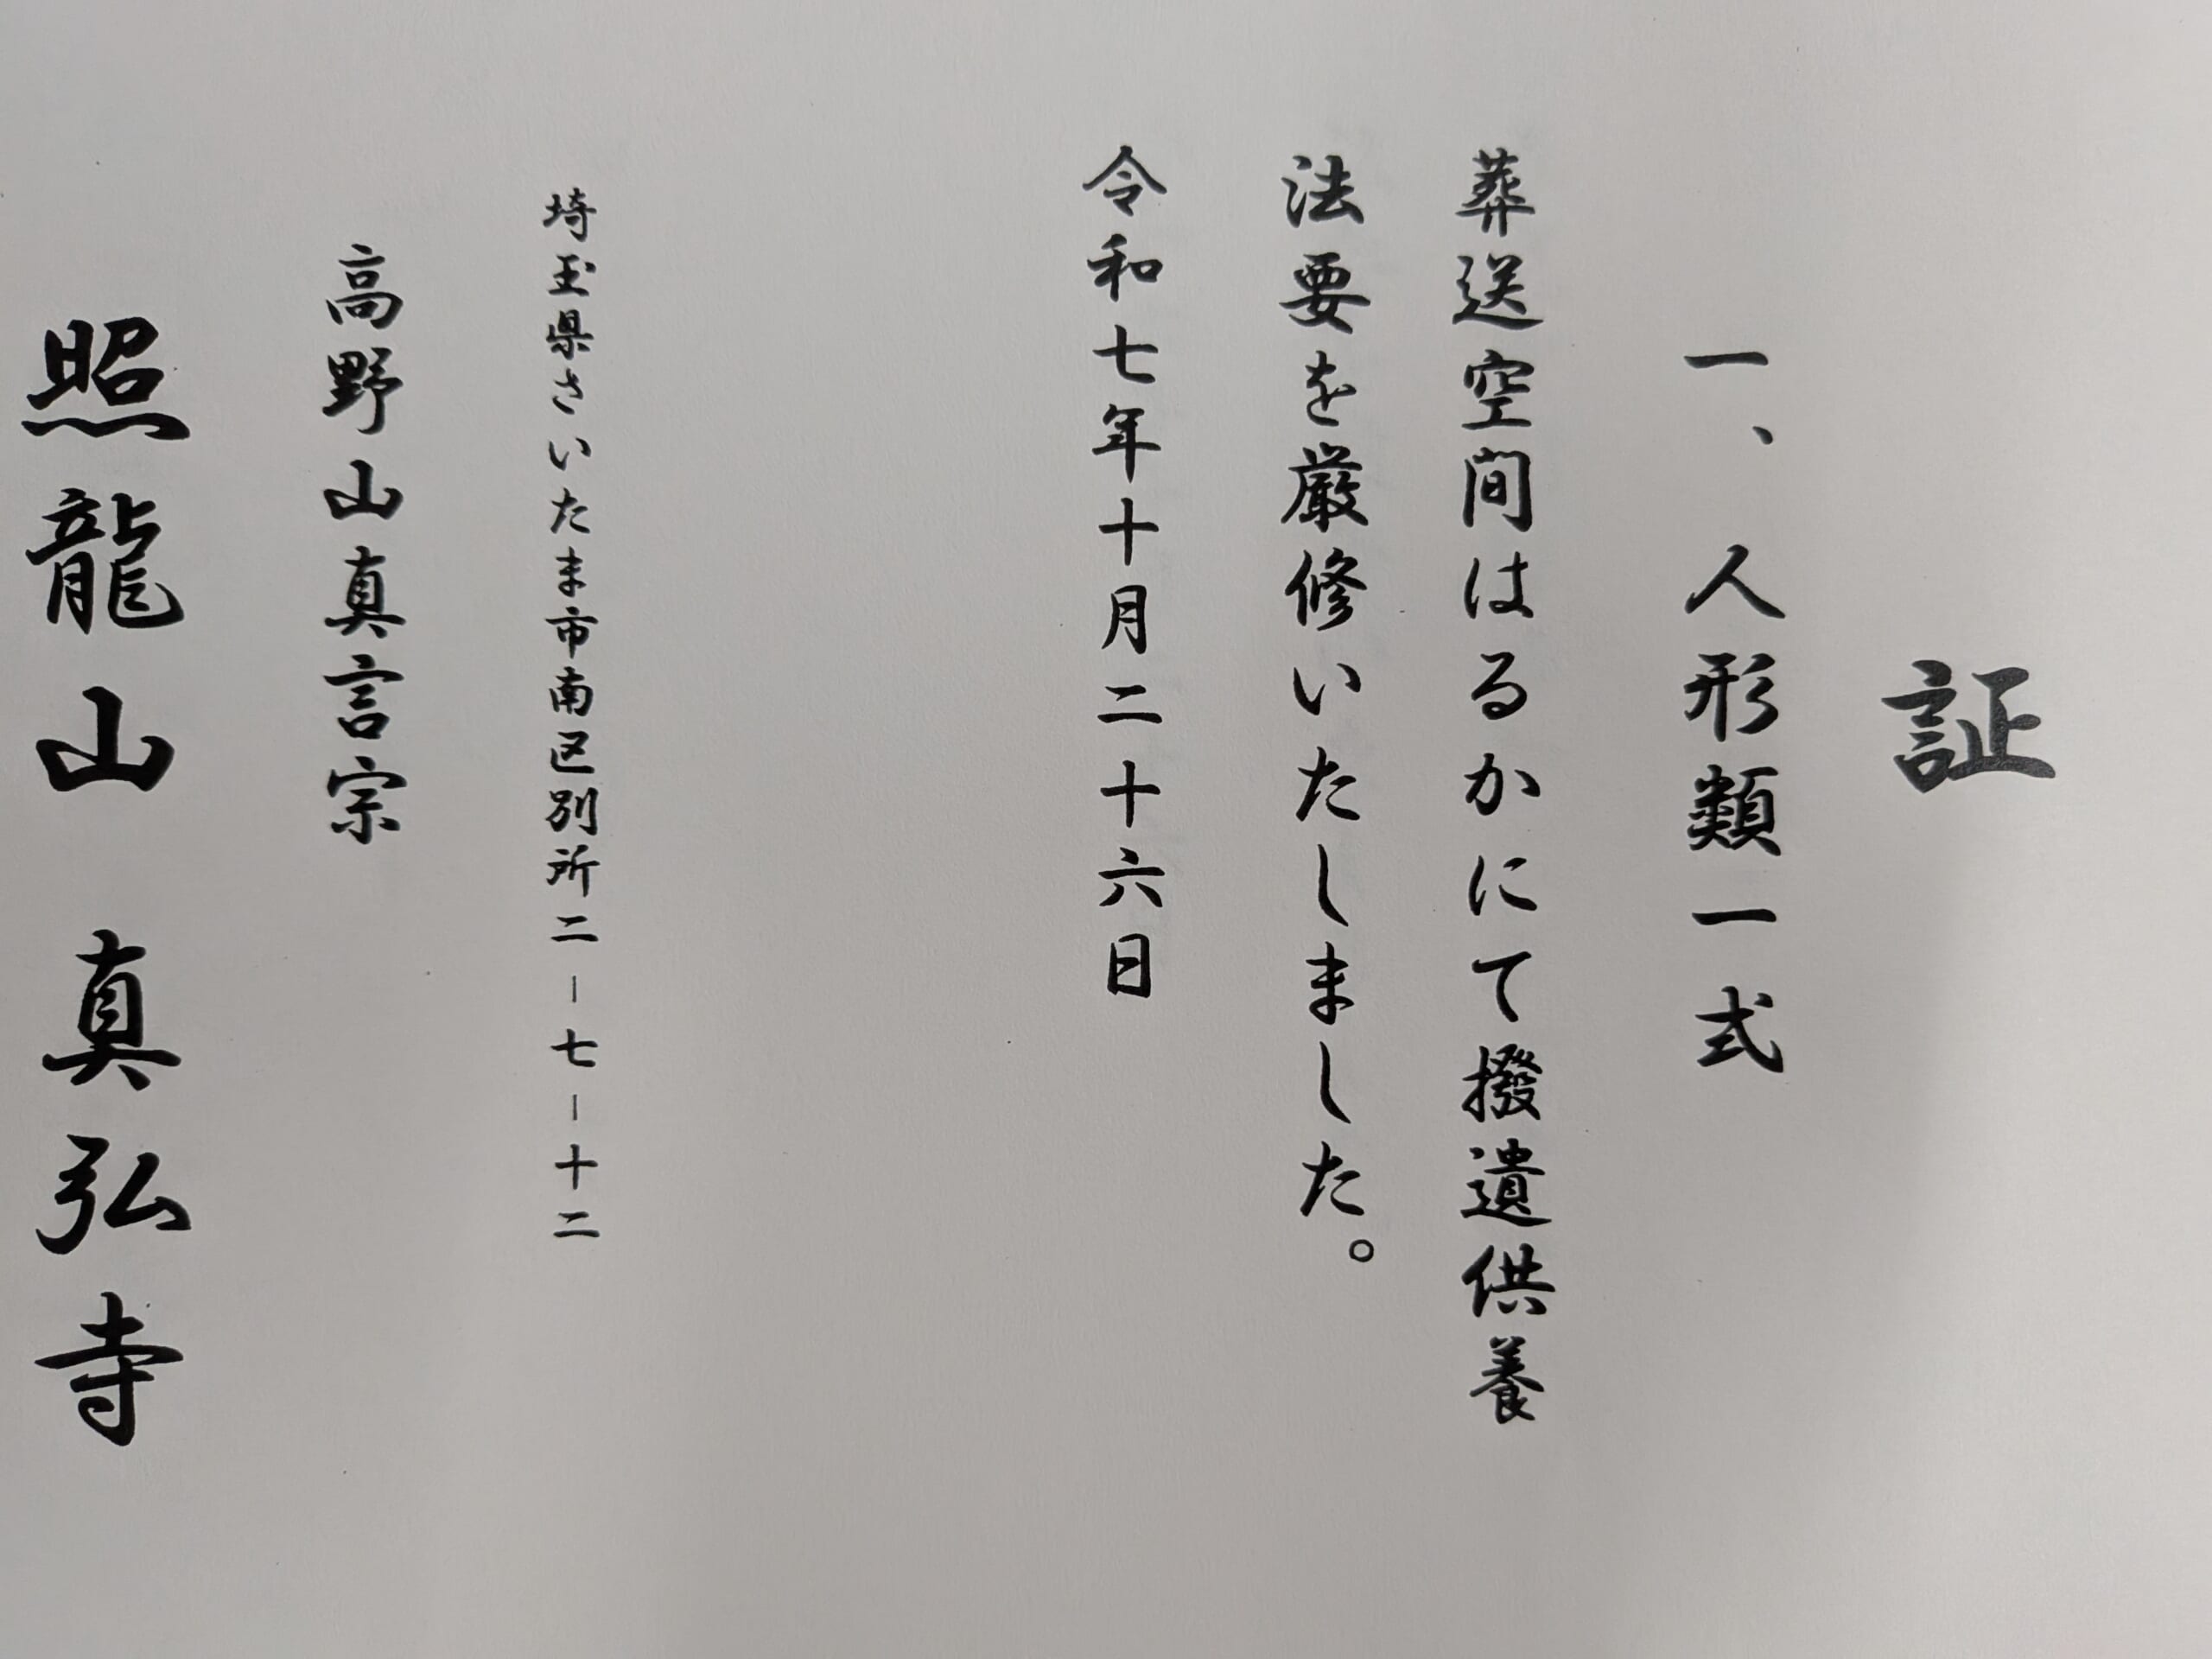 証
一、人形類一式
葬送空間はるかにて撥遺供養
法要を厳修いたしました。
令和七年十月二十六日
埼玉県さいたま市南区別所二-七-十二
高野山真言宗
照龍山 真弘寺